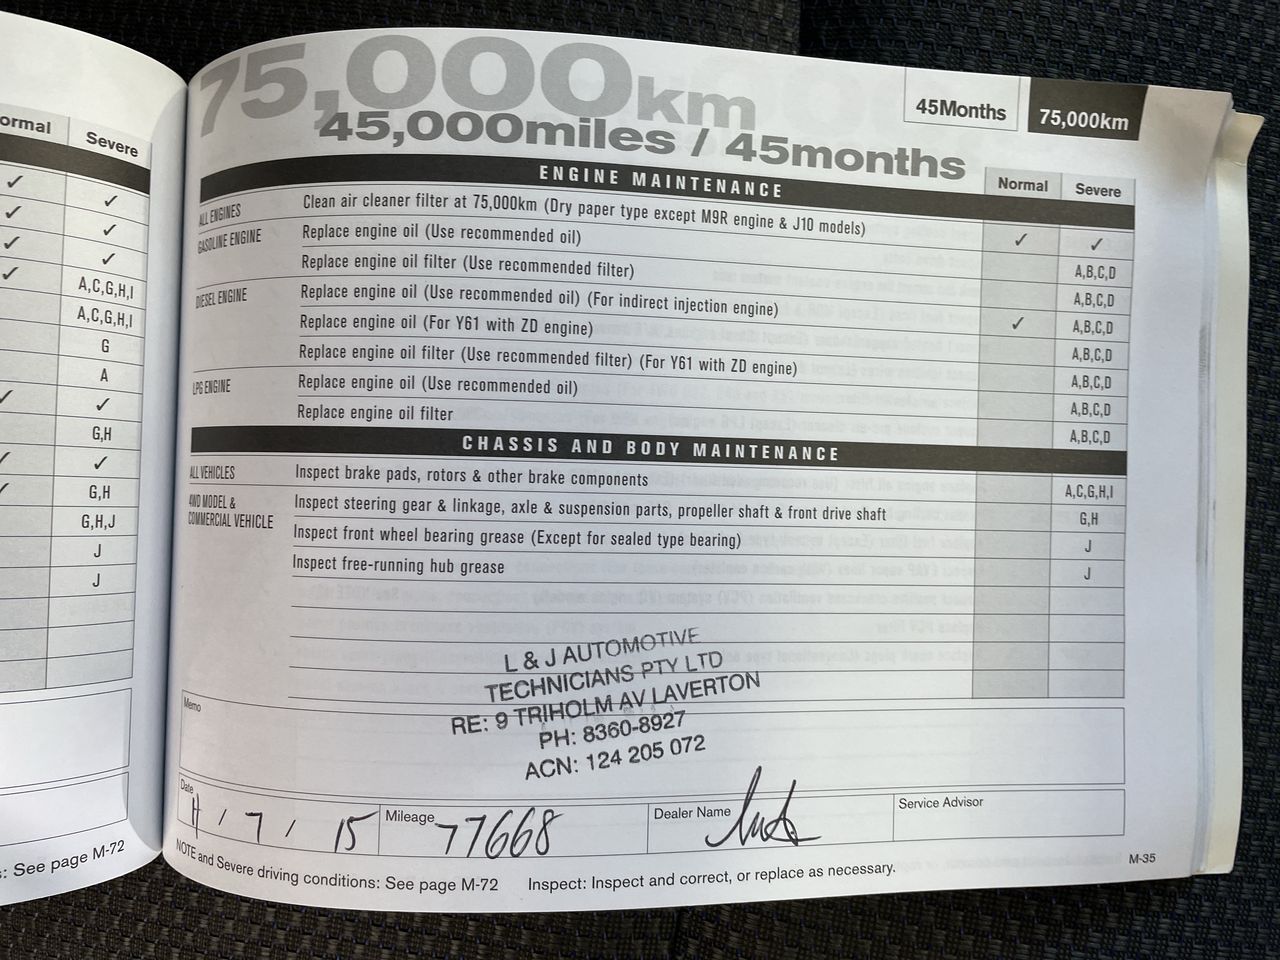 ormal Severe
✓ ✓
✓ ✓
✓ ✓
✓ A,C,G,H,I
A,C,G,H,I
G
A
✓ ✓
G,H
✓ ✓
✓ G,H
G,H,J
J
J
: See page M-72
75,000km
45,000miles / 45months
45Months
75,000km
ENGINE MAINTENANCE Normal Severe
ALL ENGINES Clean air cleaner filter at 75,000km (Dry paper type except M9R engine & J10 models) ✓ ✓
GASOLINE ENGINE Replace engine oil (Use recommended oil) A,B,C,D
Replace engine oil filter (Use recommended filter) A,B,C,D
DIESEL ENGINE Replace engine oil (Use recommended oil) (For indirect injection engine) ✓ A,B,C,D
Replace engine oil (For Y61 with ZD engine) A,B,C,D
Replace engine oil filter (Use recommended filter) (For Y61 with ZD engine) A,B,C,D
LPG ENGINE Replace engine oil (Use recommended oil) A,B,C,D
Replace engine oil filter A,B,C,D
CHASSIS AND BODY MAINTENANCE
ALL VEHICLES Inspect brake pads, rotors & other brake components A,C,G,H,I
4WD MODEL & COMMERCIAL VEHICLE Inspect steering gear & linkage, axle & suspension parts, propeller shaft & front drive shaft G,H
Inspect front wheel bearing grease (Except for sealed type bearing) J
Inspect free-running hub grease J
L & J AUTOMOTIVE
TECHNICIANS PTY LTD
RE: 9 TRIHOLM AV LAVERTON
PH: 8360-8927
ACN: 124 205 072
Memo
Date / 7 / 15 Mileage 77668 Dealer Name Service Advisor
NOTE and Severe driving conditions: See page M-72 Inspect: Inspect and correct, or replace as necessary.
M-35